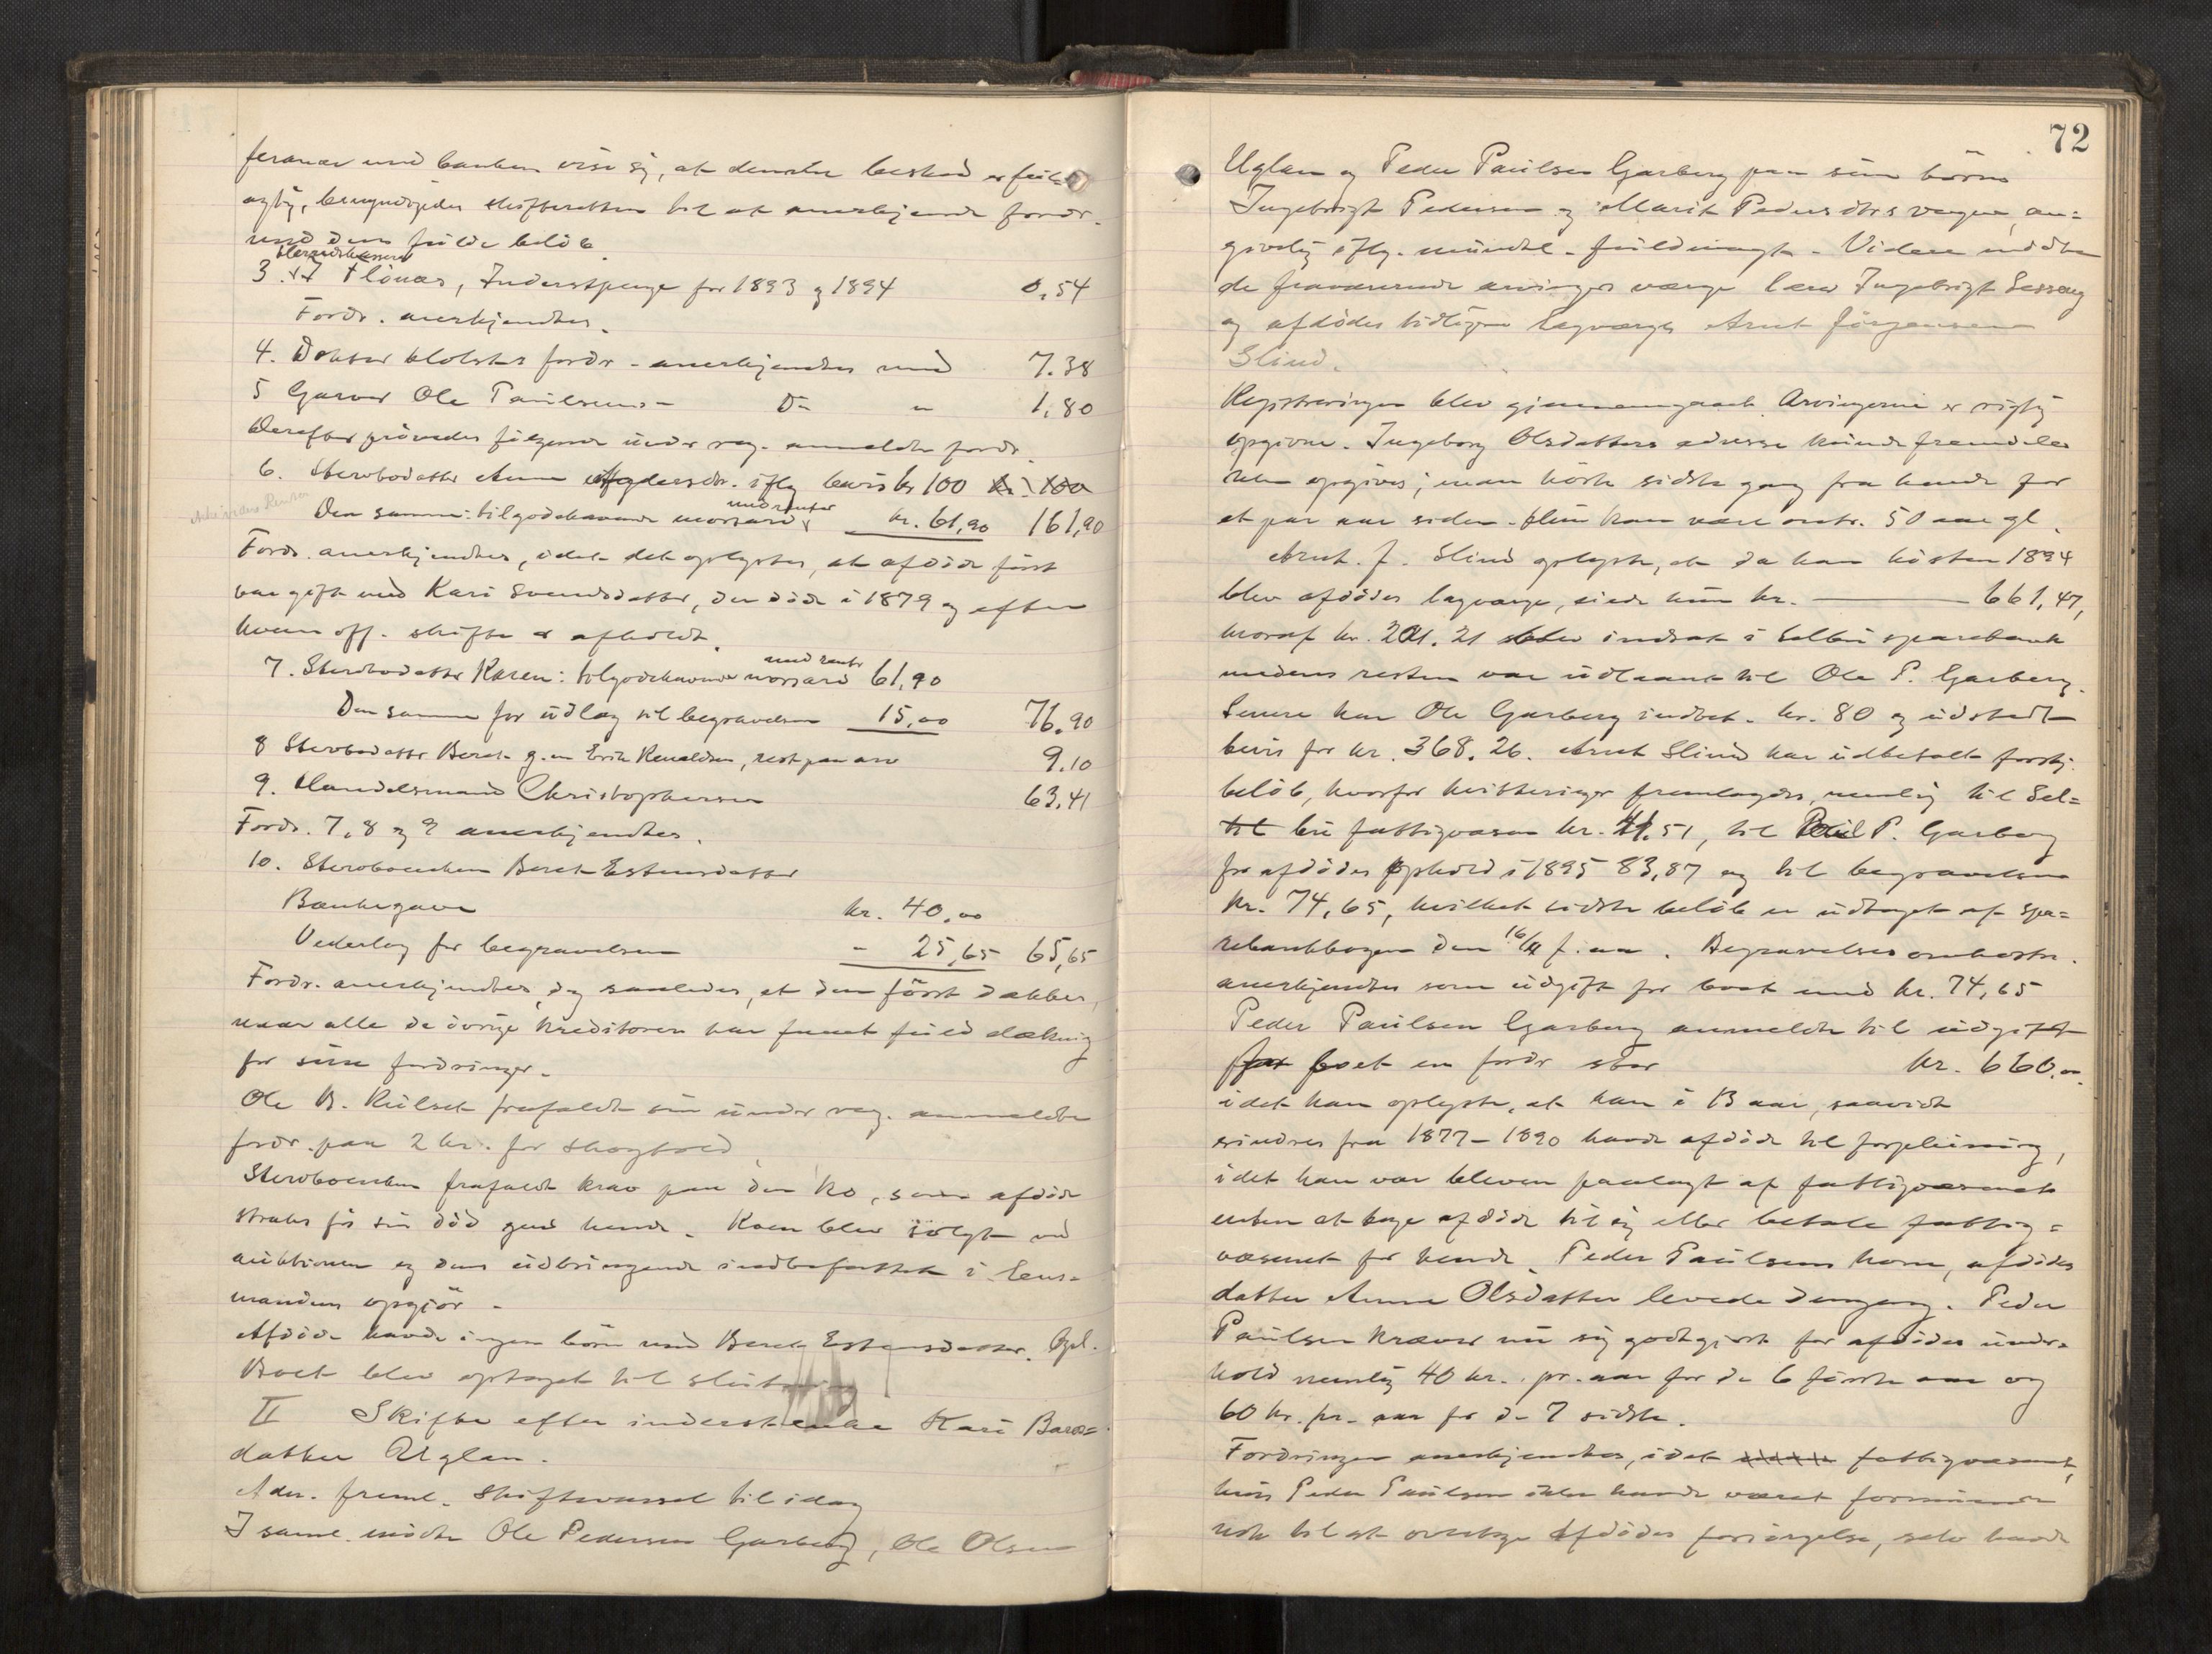 feraner med banken vise sig, at denne besked er feil-
agtig, bemyndiges skifteretten til at anerkjende fordr.
med dens fulde beløb.
3. Flönæs, Inderstpenge for 1893 og 1894 0,54
Fordr. anerkjendtes.
4. Doktor Klokks fordr. anerkjendtes med 7.38
5 Garver Ole Paulsens - Do " 1,80
Derefter prövedes fölgende under reg. anmeldte fordr.
6. Stervbodatter Anne iflg bevis kr 100 kr. 100
Den samme: tilgodehavende morsarv med renter kr. 61,90 161,90
Fordr. anerkjendtes, idet det oplystes, at afdöde först
var gift med Kari Svendsdatter, der döde i 1879 og efter
hvem off. skifte er afholdt.
7. Stervbodatter Karen: tilgodehavende morsarv med renter 61,90
Den samme for udlæg til begravelsen 15,00 76,90
8 Stervbodatter Beret g. m. Erik Renaldsen, rest paa arv 9.10
9. Handelsmand Christophersen 63,41
Fordr. 7, 8 og 9 anerkjendtes.
10. Stervboenken Beret Estensdatter
Bænkegave kr. 40,00
Vederlag for begravelsen - 25,65 65,65
Fordr. anerkjendtes, dog saaledes, at den först dækkes,
naar alle de övrige kreditorer har faaet fuld dækning
for sine fordringer.
Ole B. Kulset frafaldt sin under reg. anmeldte
fordr. paa 2 kr. for skoghold.
Stervboenken frafaldt krav paa den ko, som afdöde
straks för sin död gav hende. Koen blev solgt ved
auktionen og dens udbringende indbefattet i lens-
mandens opgjör.
Afdöde havde ingen börn med Beret Estensdatter. Opl.
Boet blev optaget til slutning
II Skifte efter inderstenke Kari Baros=
datter Uglan.
Adm. freml. skiftevarsel til idag
I saml. mödte Ole Pedersen Garberg, Ole Olsen
72
Uglan og Peder Paulsen Garberg paa sine börns
Ingebrigt Pedersen og Marit Pedersdtrs vegne, an=
givelig iflg. mündtl. fuldmagt. Videre mödte
de fraværende arvingers værge lærer Ingebrigt Sesseng
og afdödes tidligere lagværge Arnt Jörgensen
Slind.
Registreringen blev gjennemgaaet. Arvingerne er rigtig
opgivne. Ingeborg Olsdatters adresse kunde fremdeles
ikke opgives; man hörte sidste gang fra hende for
et par aar siden. Hun kan være omtr. 50 aar gl.
Arnt J. Slind oplyste, at da han hösten 1894
blev afdödes lagværge, eiede hun kr. 661,47,
hvoraf kr. 201.21 blev indsat i Selbu sparebank
medens resten var udlaant til Ole P. Garberg.
Senere har Ole Garberg indbet. kr. 80 og udstedt
bevis for kr. 368.26. Arnt Slind har udbetalt forskj.
belöb, hvorfor kvitteringer fremlagdes, nemlig til Sel=
til bu fattigvæsen kr. 41.51, til Paul P. Garberg
for afdödes ophold i 1895 83,87 og til begravelsen
kr. 74,65, hvilket sidste belöb er udtaget af spa=
rebankbogen den 16/4 f. aa. Begravelsesomkostn.
anerkjendtes som udgift for boet med kr. 74,65
Peder Paulsen Garberg anmeldte til udgift
for boet en fordr stor kr. 660.00
idet han oplyste, at han i 13 aar, saavidt
erindres fra 1877-1890 havde afdöde til forpleining,
idet han var bleven paalagt af fattigvæsenet
enten at tage afdöde til sig eller betale fattig=
væsenet for hende. Peder Paulsens kone, afdödes
datter Anne Olsdatter levede dengang. Peder
Paulsen kræver nu sig godtgjort for afdödes under-
hold nemlig 40 kr. pr. aar for de 6 förste aar og
60 kr. pr. aar for de 7 sidste.
Fordringen anerkjendtes, idet fattigvæsenet,
hvis Peder Paulsen ikke havde været formuende
nok til at overtage afdödes forsörgelse, selv havde